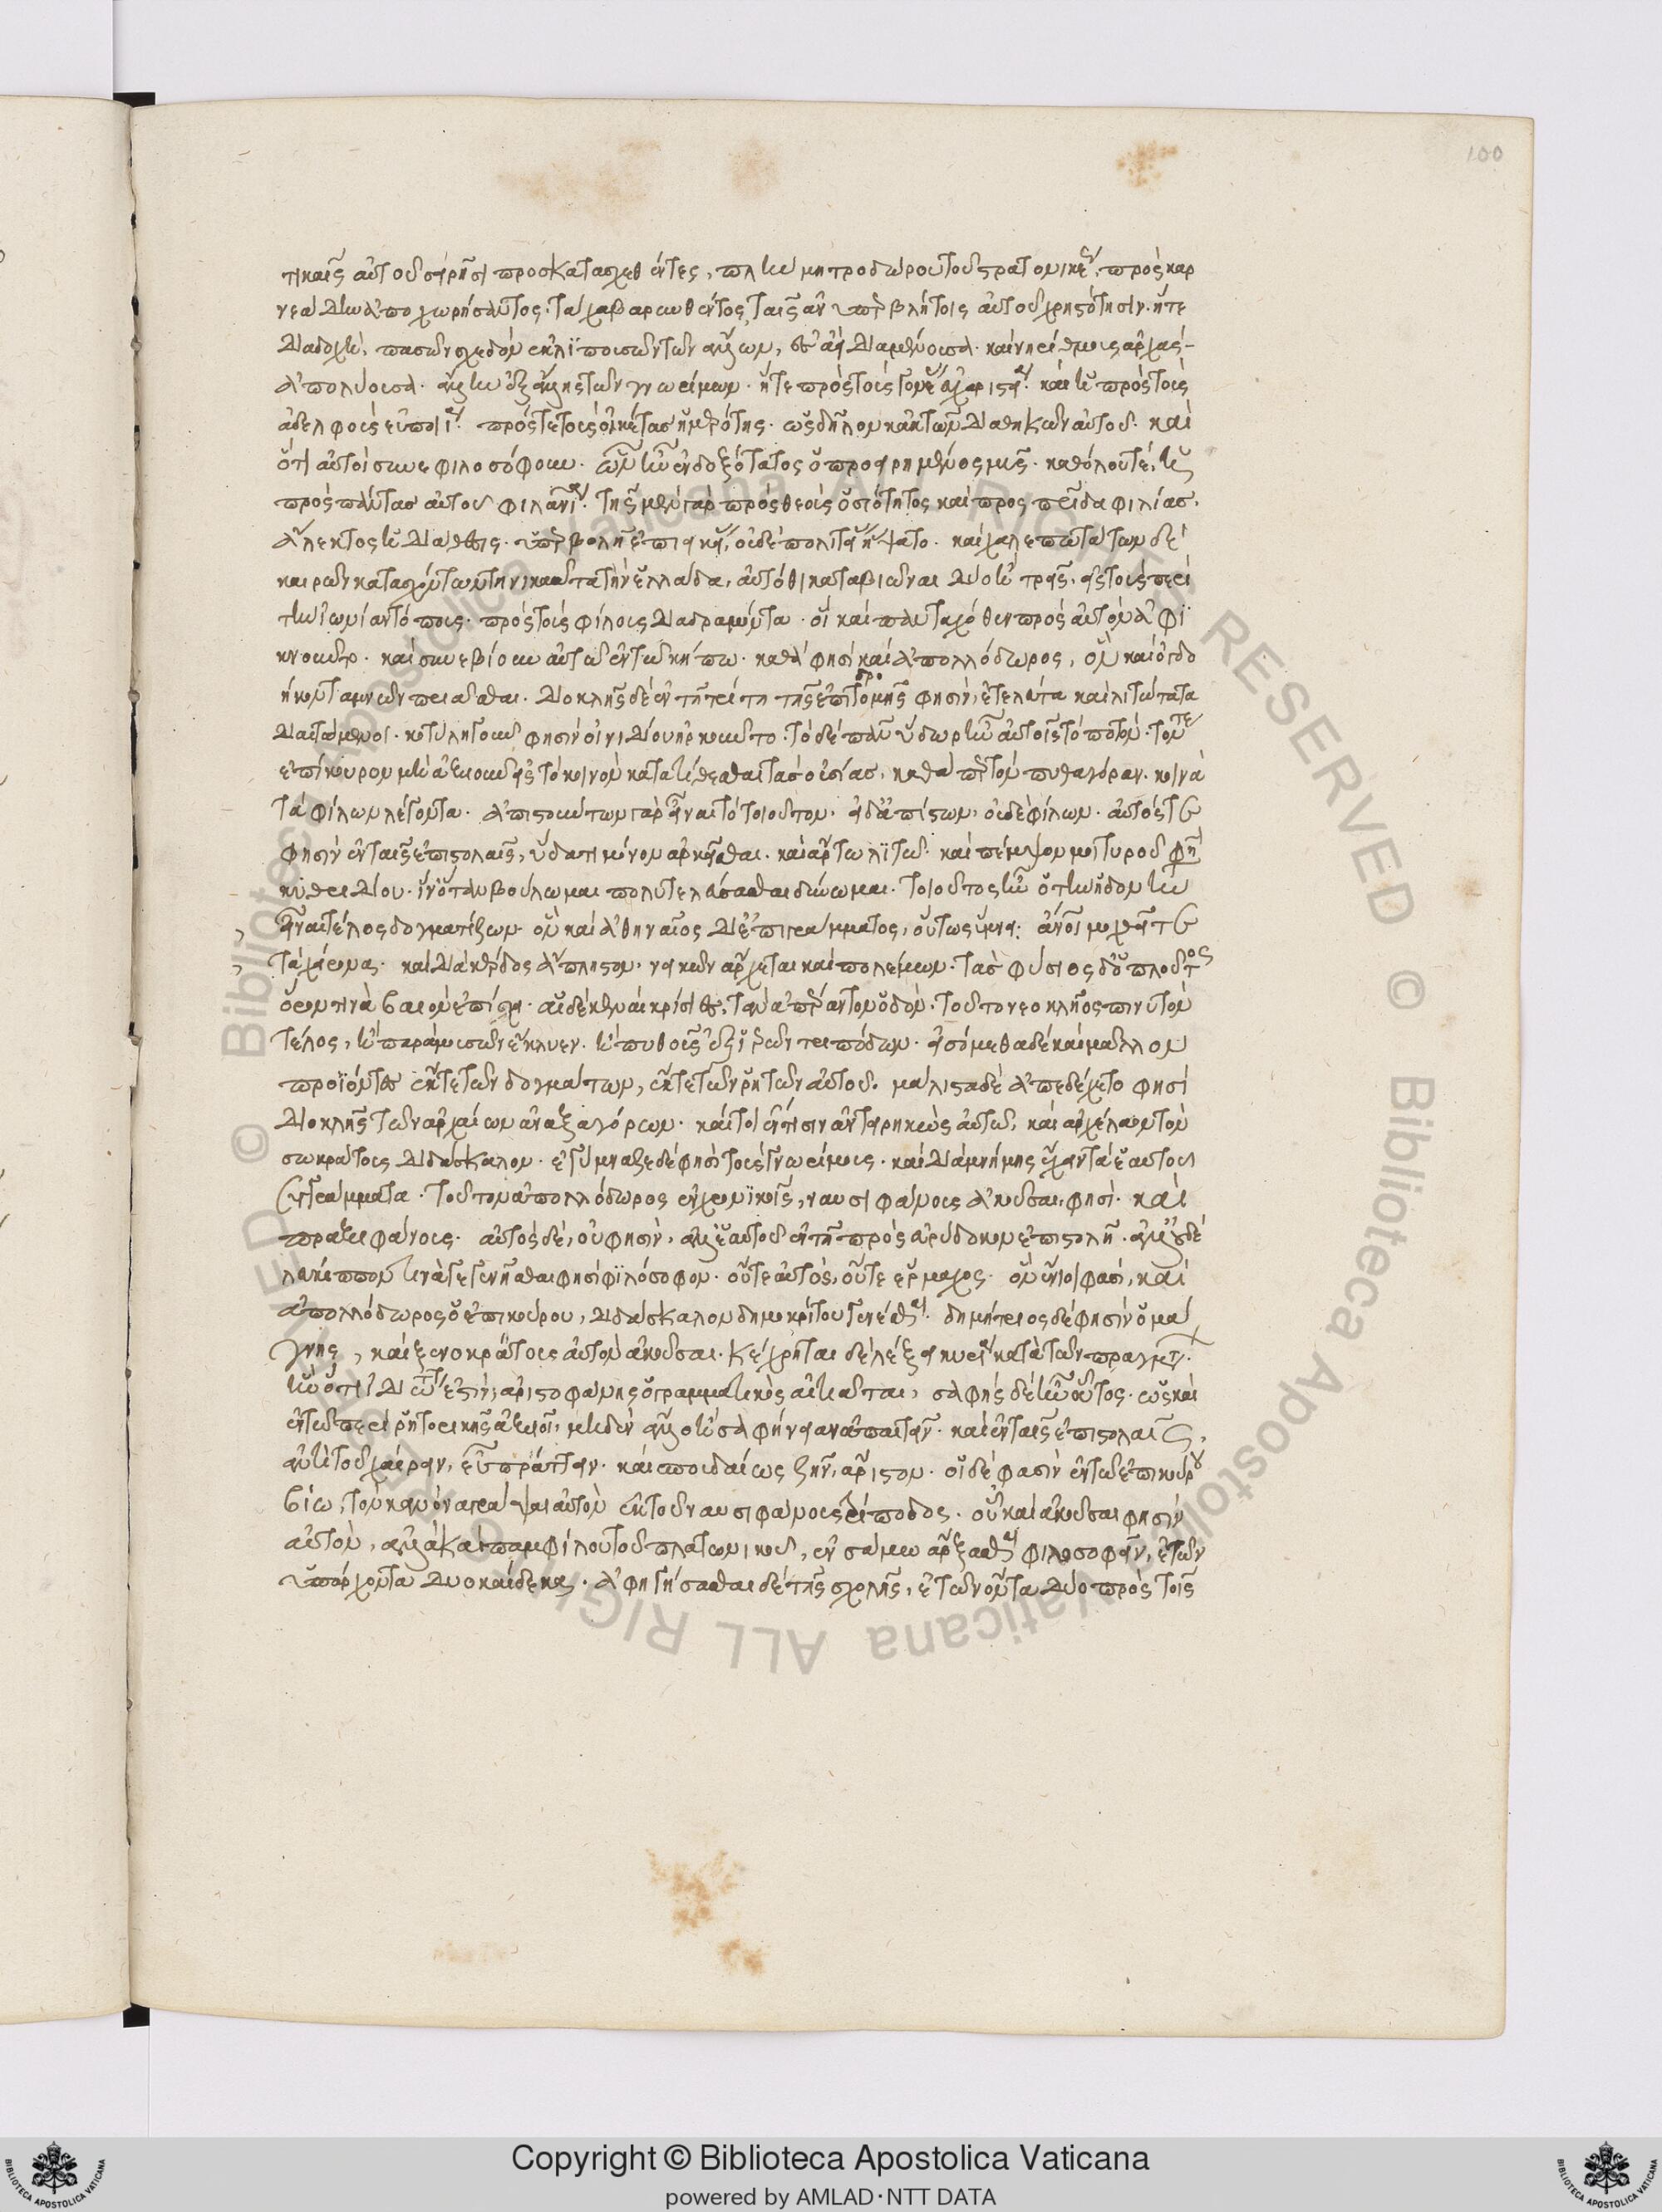 100
τικαῖς αὐτοῦ σειρῆσι προσκατασχεθέντες, πλὴν μητροδώρου τοῦ στρατονικέως πρὸς καρ
νεάδην ἀποχωρήσαντος. τάχα βαρυνθέντος ταῖς ἀνυπερβλήτοις αὐτοῦ χρηστότησιν. ἥτε
διαδοχὴ, πασῶν σχεδὸν ἐκλϊποισῶν τῶν ἄλλων, ἐς ἀεὶ διαμένουσα. καὶ νηρίθμους ἀρχὰς
ἀπολύουσα. ἄλλην ἐξ ἄλλης τῶν γνωρίμων. ἥτε πρὸς τοὺς γονέας εὐχαριστία. καὶ ἡ πρὸς τοὺς
ἀδελφοὺς εὐποιία. πρός τε τοὺς οἰκέτας ἡμερότης. ὡς δῆλον κἀκ τῶν διαθηκῶν αὐτοῦ. καὶ
ὅτι αὐτοὶ συνεφιλοσόφουν. ὧν ἦν ἐνδοξότατος ὁ προειρημένος μῦς. καθόλου τέ, ἡ
πρὸς πάντας αὐτοῦ φιλανθρωπία. τῆς μὲν γὰρ πρὸς θεοὺς ὁσιότητος καὶ πρὸς πατρίδα φιλίας,
ἄλεκτος ἡ διάθεσις. ὑπερβολῇ ἐπιεικείας, οὐδὲ πολιτείας ἥψατο. καὶ χαλεπωτάτων δὲ
καιρῶν κατασχόντων τηνικαῦτα τὴν ἑλλάδα, αὐτόθι καταβιῶναι δὶς ἢ τρὶς, εἰς τοὺς περὶ
τὴν ἰωνίαν τόπους πρὸς τοὺς φίλους διαδραμόντα. οἳ καὶ πανταχόθεν πρὸς αὐτὸν ἀφϊ
κνοῦντο. καὶ συνεβίουν αὐτῷ ἐν τῷ κήπῳ. καθά φησι καὶ ἀπολλόδωρος, ὃν καὶ ὀγδο
ήκοντα μνῶν πρίασθαι. διοκλῆς δὲ ἐν τῇ τρίτῃ τῆς ἐπιτομῆς φησὶν, εὐτελέστατα καὶ λιτώτατα
διαιτώμενοι. κοτύλῃ γοῦν φησὶν οἰνιδίου ἠρκοῦντο. τὸ δὲ πᾶν ὕδωρ ἦν αὐτοῖς τὸ ποτόν. τόν τε
ἐπίκουρον μὴ ἀξιοῦν εἰς τὸ κοινὸν κατατίθεσθαι τὰς οὐσίας, καθάπερ τὸν πυθαγόραν. κοινὰ
τὰ φίλων λέγοντα. ἀπιστούντων γὰρ εἶναι τὸ τοιοῦτον. εἰ δ' ἀπίστων, οὐδὲ φίλων. αὐτός τε
φησὶν ἐν ταῖς ἐπιστολαῖς, ὕδατι μόνον ἀρκεῖσθαι. καὶ ἄρτῳ λϊτῷ. καὶ πέμψον μοι τυροῦ φησι
κυθριδίου. ἵν' ὅταν βούλωμαι πολυτελεύσασθαι δύνωμαι. τοιοῦτος ἦν ὁ τὴν ἡδονὴν
εἶναι τέλος δογματίζων. ὃν καὶ ἀθηναῖος δι' ἐπιγράμματος, οὕτως ὑμνεῖ: ἄνθρωποι μοχθεῖτε
τὰ χείρονα. καὶ διὰ κέρδος ἄπληστον, νεικῶν ἄρχεται καὶ πολέμων. τᾶς φύσιος δ' ὁ πλοῦτος
ὅρον τινὰ βαιὸν ἐπίσχει. αἱ δὲ κεναὶ κρίσιες, τὰν ἀπέραντον ὁδόν. τοῦτο νεοκλῆος πινυτὸν
τέλος, ἢ παρὰ μουσῶν ἔκλυεν. ἢ πυθοῦς ἐξ ἱερῶν τριπόδων. εἰσόμεθα δὲ καὶ μᾶλλον
προϊόντες ἔκ τε τῶν δογμάτων, ἔκ τε τῶν ῥητῶν αὐτοῦ. μάλιστα δὲ ἀπεδέχετο φησὶ
διοκλῆς τῶν ἀρχαίων ἀναξαγόραν. καίτοι ἔν τισιν ἀντειρηκὼς αὐτῷ, καὶ ἀρχέλαον τὸν
σωκράτους διδάσκαλον. ἐγύμναζε δέ φησι τοὺς γνωρίμους. καὶ διὰ μνήμης ἔχειν τὰ ἑαυτοῦ
συγγράμματα. τοῦτον ἀπολλόδωρος ἐν χρονϊκοῖς, ναυσιφάνους ἀκοῦσαι, φησὶ. καὶ
πραξιφάνους. αὐτὸς δέ, οὔ φησιν, ἀλλ' ἑαυτοῦ ἐν τῇ πρὸς εὐρύδοκον ἐπιστολῇ. ἀλλ' οὐδὲ
λεύκιππον τινὰ γεγενῆσθαι φησὶ φϊλόσοφον. οὔτε αὐτὸς, οὔτε ἕρμαχος. ὃν ἔνιοι φασὶ, καὶ
ἀπολλόδωρος ὁ ἐπικούρου, διδάσκαλον δημοκρίτου γενέσθαι. δημήτριος δέ φησιν ὁ μά
γνης, καὶ ξενοκράτους αὐτὸν ἀκοῦσαι. κέχρηται δὲ λέξει κυρίᾳ κατὰ τῶν πραγμάτων.
ἣν ὅτι ἰδιωτάτη ἐστὶν, ἀριστοφάνης ὁ γραμματικὸς αἰτιᾶται. σαφὴς δὲ ἦν οὗτος. ὡς καὶ
ἐν τῷ περὶ ῥητορικῆς ἀξιοῖ, μηδὲν ἄλλο ἢ σαφήνειαν ἀπαιτεῖν. καὶ ἐν ταῖς ἐπιστολαῖς,
ἀντὶ τοῦ χαίρειν, εὖ πράττειν. καὶ σπουδαίως ζῆν, ἄριστον. οἱ δέ φασιν ἐν τῷ ἐπικούρου
βίῳ, τὸν κανόνα γράψαι αὐτὸν ἐκ τοῦ ναυσιφάνους τρίποδος. οὗ καὶ ἀκοῦσαι φησὶν
αὐτὸν, ἀλλὰ καὶ παμφίλου τοῦ πλατωνικοῦ, ἐν σάμῳ ἄρξασθαι φιλοσοφεῖν, ἐτῶν
ὑπάρχοντα δυοκαίδεκα. ἀφηγήσασθαι δὲ τῆς σχολῆς, ἐτῶν ὄντα δύο πρὸς τοῖς
Copyright © Biblioteca Apostolica Vaticana
powered by AMLAD·NTT DATA
© Biblioteca Apostolica Vaticana ALL RIGHTS RESERVED © Biblioteca Apostolica Vaticana ALL RIGHTS RESERVED
BIBLIOTECA APOSTOLICA VATICANA
BIBLIOTECA APOSTOLICA VATICANA